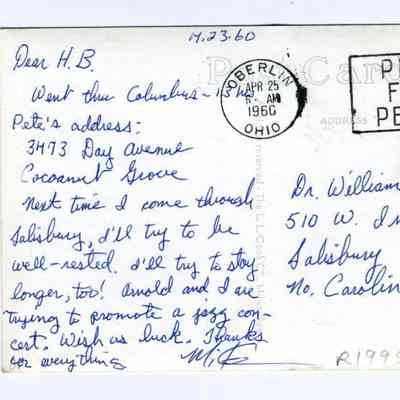 4.23.60
Dear H.B.
Went thru Columbus -
Pete's address:
3473 Day Avenue
Cocoanut Grove
Next time I come through
Salisbury, I'll try to be
well-rested. I'll try to stay
longer, too! Arnold and I are
trying to promote a jazz con-
cert. Wish us luck. Thanks
for everything
Mike
Post Card
OBERLIN
APR 25
AM
1960
OHIO
ADDRESS
Dr. William
510 W. In
Salisbury
No. Carolin
R1995